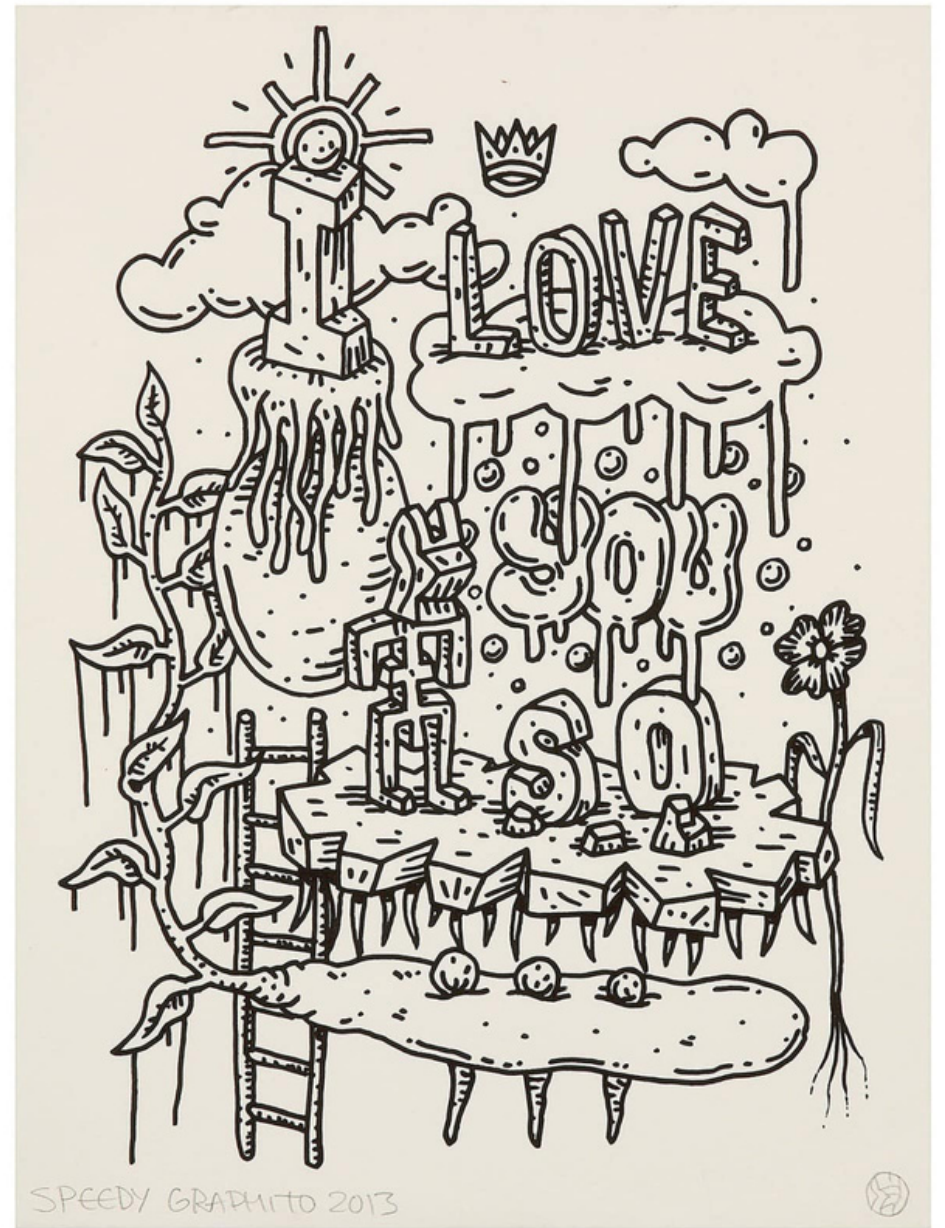 I LOVE
YOU
SO
...
SPEEDY GRAPHITO 2013